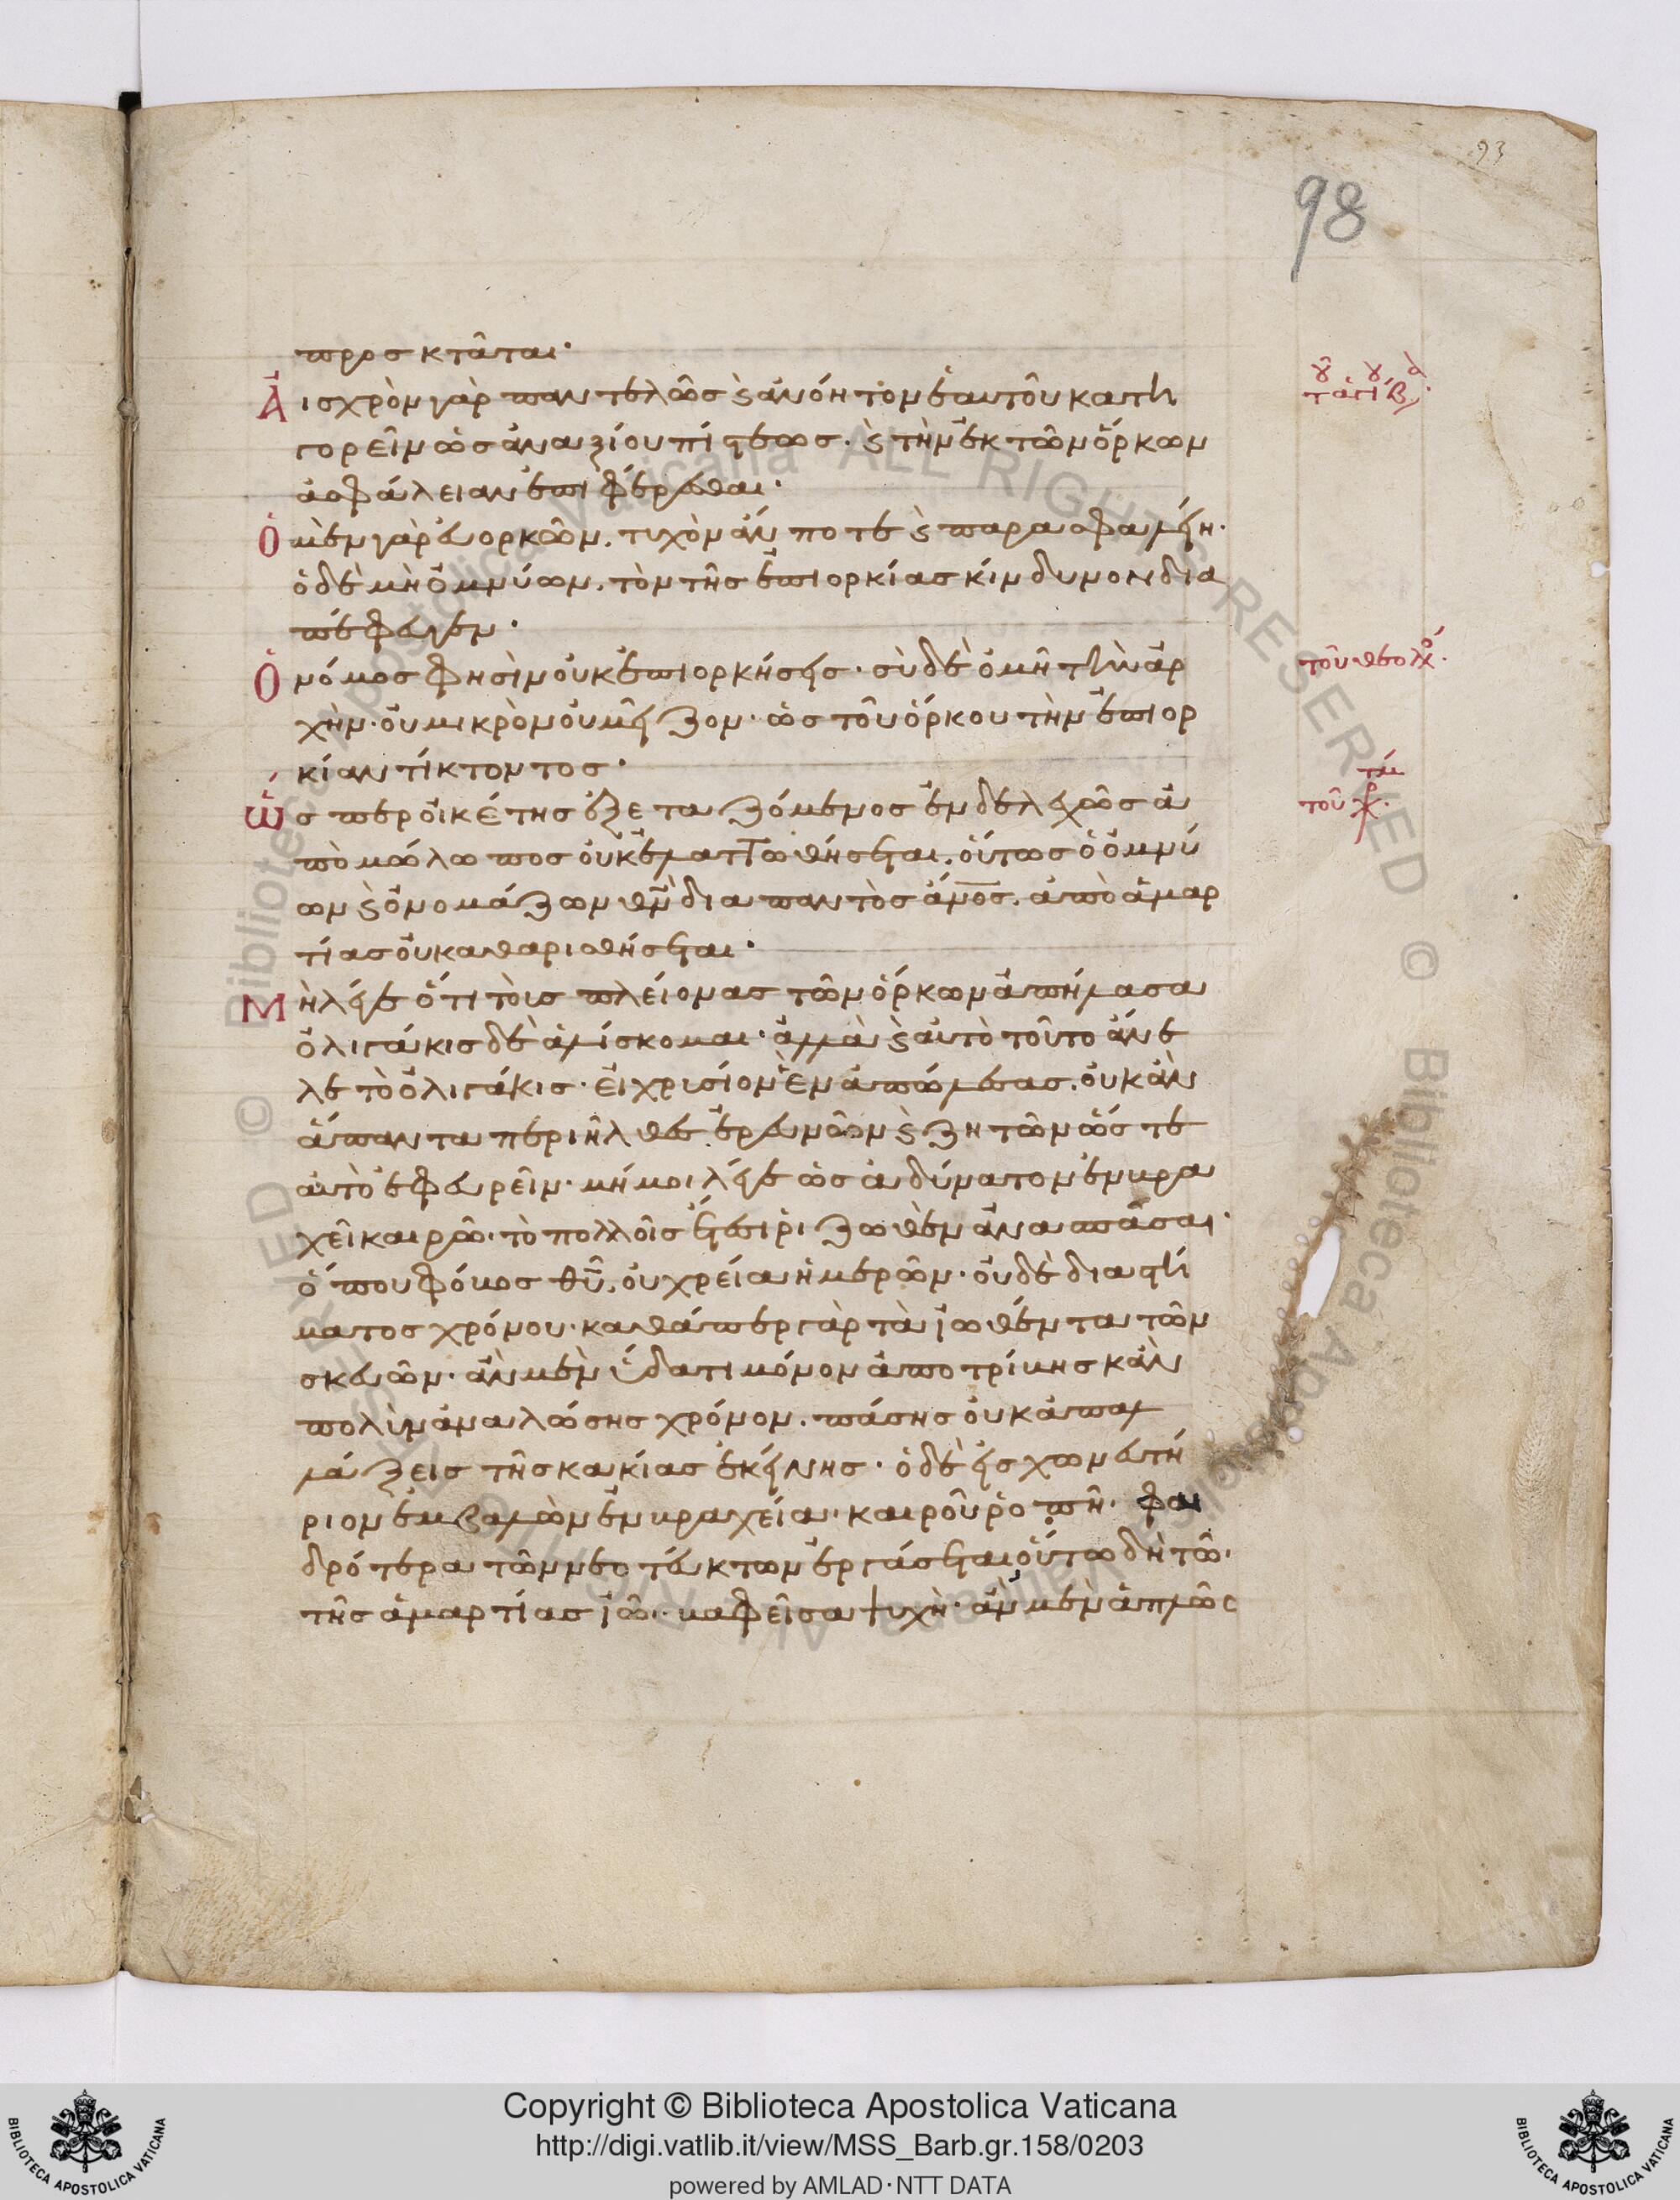 93
98
προσκτᾶται·
Αἰσχρὸν γὰρ παντελῶς ϗ ἀνόητον ἑαυτοῦ κατη
γορεῖν ὡς ἀναξίου πίστεως· ϗ τὴν ἐκ τῶν ὅρκων
ἀσφάλειαν ἐπιφέρεσθαι·
Ὁ μὲν γὰρ εὐορκῶν, τυχὸν ἄν ποτε ϗ παρασφαλείη·
ὁ δὲ μὴ ὀμνύων, τὸν τῆς ἐπιορκίας κίνδυνον δια
πέφευγεν·
Ὁ νόμος φησὶν οὐκ ἐπιορκήσεις· σὺ δὲ ὀμῆ τὴν ἀρ
χὴν· οὐ μικρὸν οὐ μεῖζον· ὡς τοῦ ὅρκου τὴν ἐπιορ
κίαν τίκτοντος·
Ὥσπερ οἰκέτης ἐξεταζόμενος ἐνδελεχῶς ἀ
πὸ μώλωπος οὐκ ἐλαττωθήσεται, οὕτως ὁ ὀμνύ
ων ϗ ὀνομάζων θν̅ διαπαντὸς ἄν̅ος̅, ἀπὸ ἁμαρ
τίας οὐ καθαρισθήσεται·
Μὴ λέγε ὅτι τοὺς πλείονας τῶν ὅρκων ἀπήλασα
ὀλιγάκις δὲ ἁλίσκομαι· ἀλλὰ ϗ αὐτὸ τοῦτο ἄνε
λε τὸ ὀλιγάκις· εἰ χρυσίον ἓν ἀπώλεσας, οὐκ ἂν
ἅπαντα περιῆλθες ἐρευνῶν ϗ ζητῶν ὥστε
αὐτὸ ἐφευρεῖν· μή μοι λέγε ὡς ἀδύνατον ἐν βρα
χεῖ καιρῶ· τὸ πολλοῖς ἔτεσι ῥιζωθὲν ἀνασπᾶσαι·
ὅπου φόβος θυ̅, οὐ χρεία ἡμερῶν· οὐδὲ διαστή
ματος χρόνου· καθάπερ γὰρ τὰ ἰωθέντα τῶν
σκευῶν· ἂν μὲν ὕδατι μόνον ἀποτρίψης κἂν
πολὺν ἀναλώσης χρόνον, πάσης οὐκ ἀπαλ
λάξεις τῆς κακίας ἐκείνης· ὁ δὲ εἰς χωνευτή
ριον ἐμβαλὼν ἐν βραχεία καιροῦ ῥοπῆ· φαι
δρότερα τῶν νεοτεύκτων ἐργάσεται, οὕτω δὴ τῶ
τῆς ἁμαρτίας ἰῶ· βαφεῖσα ψυχὴ· ἂν μὲν ἁπλῶς
τοῦ θεολό·
τοῦ χρ·
Copyright © Biblioteca Apostolica Vaticana
http://digi.vatlib.it/view/MSS_Barb.gr.158/0203
powered by AMLAD·NTT DATA
BIBLIOTECA APOSTOLICA VATICANA
BIBLIOTECA APOSTOLICA VATICANA